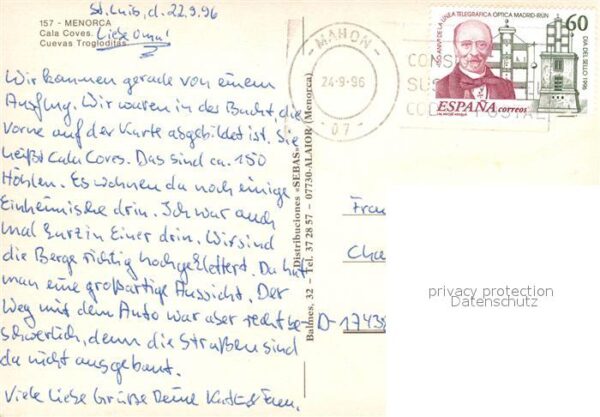 St. Luis, d. 22.9.96
157 - MENORCA
Cala Coves.
Cuevas Trogloditas
Liebe Oma!
Wir kommen gerade von einem
Ausflug. Wir waren in der Bucht, die
vorne auf der Karte abgebildet ist. Sie
heißt Cala Coves. Das sind ca. 150
Höhlen. Es wohnen da noch einige
Einheimische drin. Ich war auch
mal kurz in einer drin. Wir sind
die Berge richtig hochgeklettert. Da hat
man eine großartige Aussicht. Der
Weg mit dem Auto war aber recht be
schwerlich, denn die Straßen sind
da nicht ausgebaut.
Viele liebe Grüße Deine
Distribuciones «SEBAS»
Balmes, 32 - Tel. 37 28 57 - 07730-ALAIOR (Menorca)
MAHON
24-9-96
07
CONSI
SU
CO POSTAL
150 ANIV. DE LA LINEA TELEGRAFICA OPTICA MADRID-IRUN
60
DIA DEL SELLO 1996
ESPAÑA correos
Frau
Cha
D-1743
privacy protection
Datenschutz